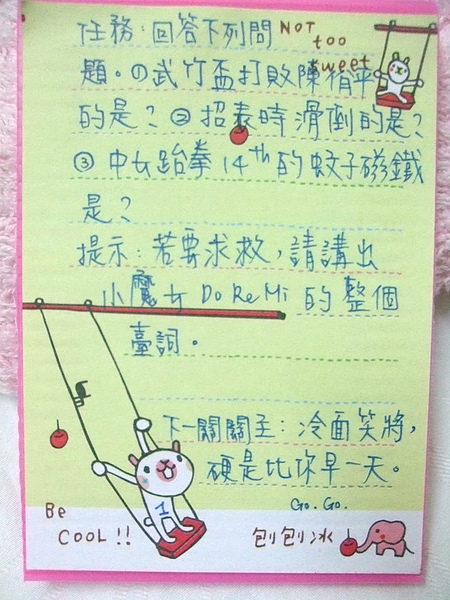 任務:回答下列問
NOT
too
sweet
題。①武竹盃打敗陳平
的是?②招表時滑倒的是?
③中女跆拳14th的蚊子磁鐵
是?
提示:若要求救,請講出
小魔女DoReMi的整個
臺詞。
下一關關主:冷面笑將,
硬是比你早一天。
1
Go. Go.
Be
COOL!!
刨刨冰